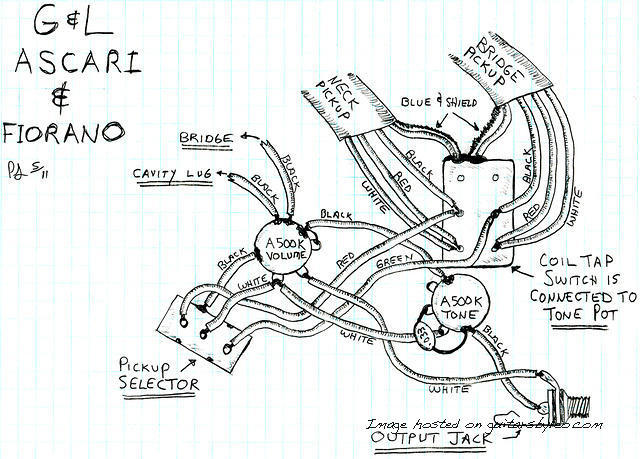 G&L
ASCARI
&
FIORANO
5/11
BRIDGE
CAVITY LUG
BLACK
BLACK
NECK
PICKUP
BRIDGE
PICKUP
BLUE & SHIELD
BLACK
RED
WHITE
BLACK
RED
WHITE
BLACK
A500K
VOLUME
BLACK
WHITE
RED
GREEN
A500K
TONE
.033
WHITE
BLACK
WHITE
COIL TAP
SWITCH IS
CONNECTED TO
TONE POT
PICKUP
SELECTOR
Image hosted on guitarsbyleo.com
OUTPUT JACK